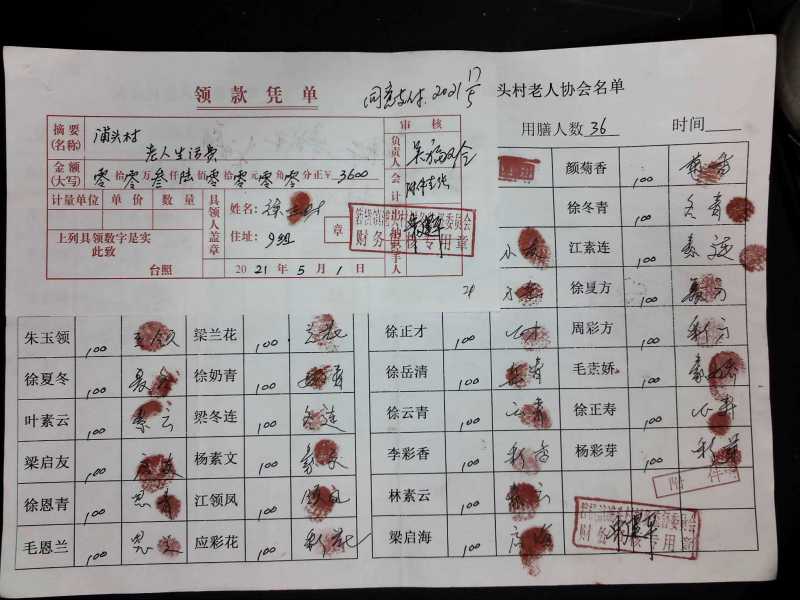 领款凭单
同意支付. 2021 17/5
头村老人协会名单
用膳人数 36 时间
摘要(名称) 浦头村
老人生活费
审核
负责人
金额(大写) 零拾零万叁仟陆佰零拾零元零角零分正¥ 3600
会计
计量单位 单价 数量
具领人盖章
姓名:
住址: 9组
章
上列具领数字是实
此致
台照
2021年5月1日
财务 核专用章
颜菊香 100 菊香
徐冬青 100 冬青
江素连 100 素连
徐夏方 100 夏方
朱玉领 100 玉领 梁兰花 100 兰花 徐正才 100 正才 周彩方 100 彩方
徐夏冬 100 夏冬 徐奶青 100 奶青 徐岳清 100 岳清 毛素娇 100 素娇
叶素云 100 素云 梁冬连 100 冬连 徐云青 100 云青 徐正寿 100 正寿
梁启友 100 启友 杨素文 100 素文 李彩香 100 彩香 杨彩芽 100 彩芽
徐恩青 100 恩青 江领凤 100 领凤 林素云 100 素云
附件
毛恩兰 100 恩兰 应彩花 100 彩花 梁启海 100 启海
财务 核专用章